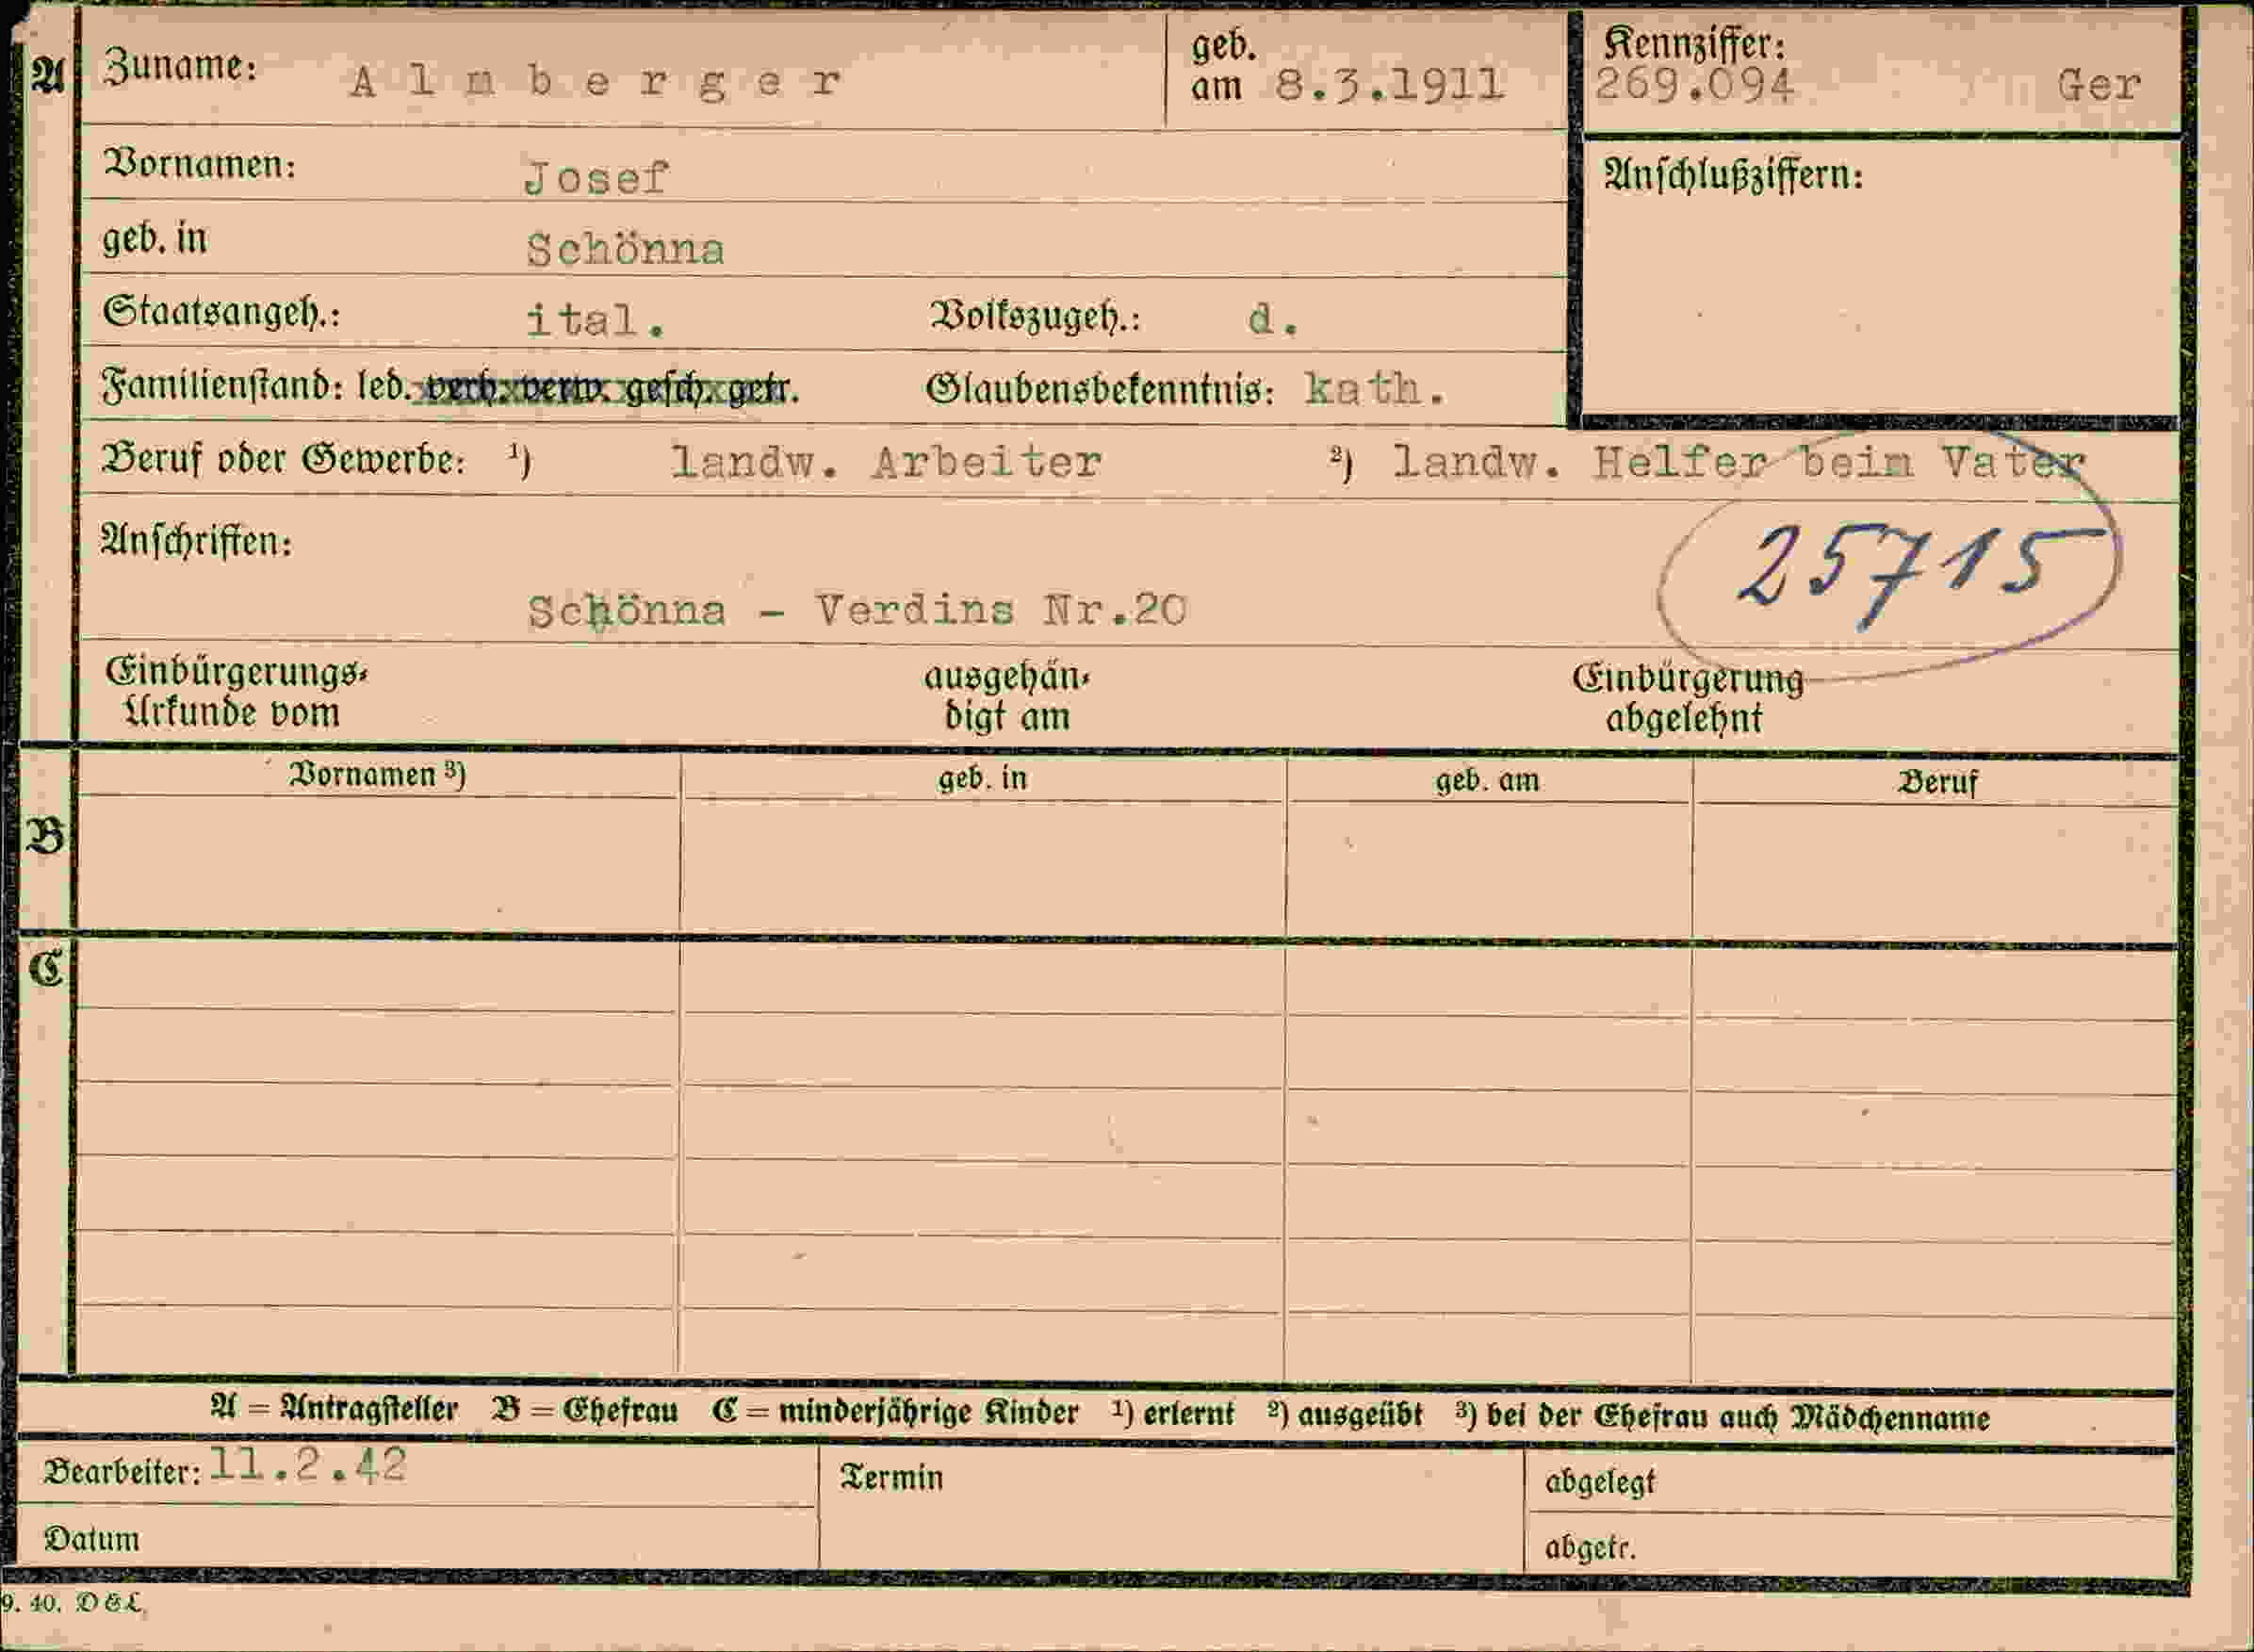 A Zuname: Almberger geb. am 8.3.1911 Kennziffer: 269.094 Ger
Vornamen: Josef Anschlußziffern:
geb. in Schönna
Staatsangeh.: ital. Volkszugeh.: d.
Familienstand: led. verh. verw. gesch. getr. Glaubensbekenntnis: kath.
Beruf oder Gewerbe: ¹) landw. Arbeiter ²) landw. Helfer beim Vater
Anschriften: 25715
Schönna - Verdins Nr.20
Einbürgerungs- ausgehän- Einbürgerung
Urkunde vom digt am abgelehnt
Vornamen ³) geb. in geb. am Beruf
B
C
A = Antragsteller B = Ehefrau C = minderjährige Kinder ¹) erlernt ²) ausgeübt ³) bei der Ehefrau auch Mädchenname
Bearbeiter: 11.2.42 Termin abgelegt
Datum abgetr.
9. 40. D&L